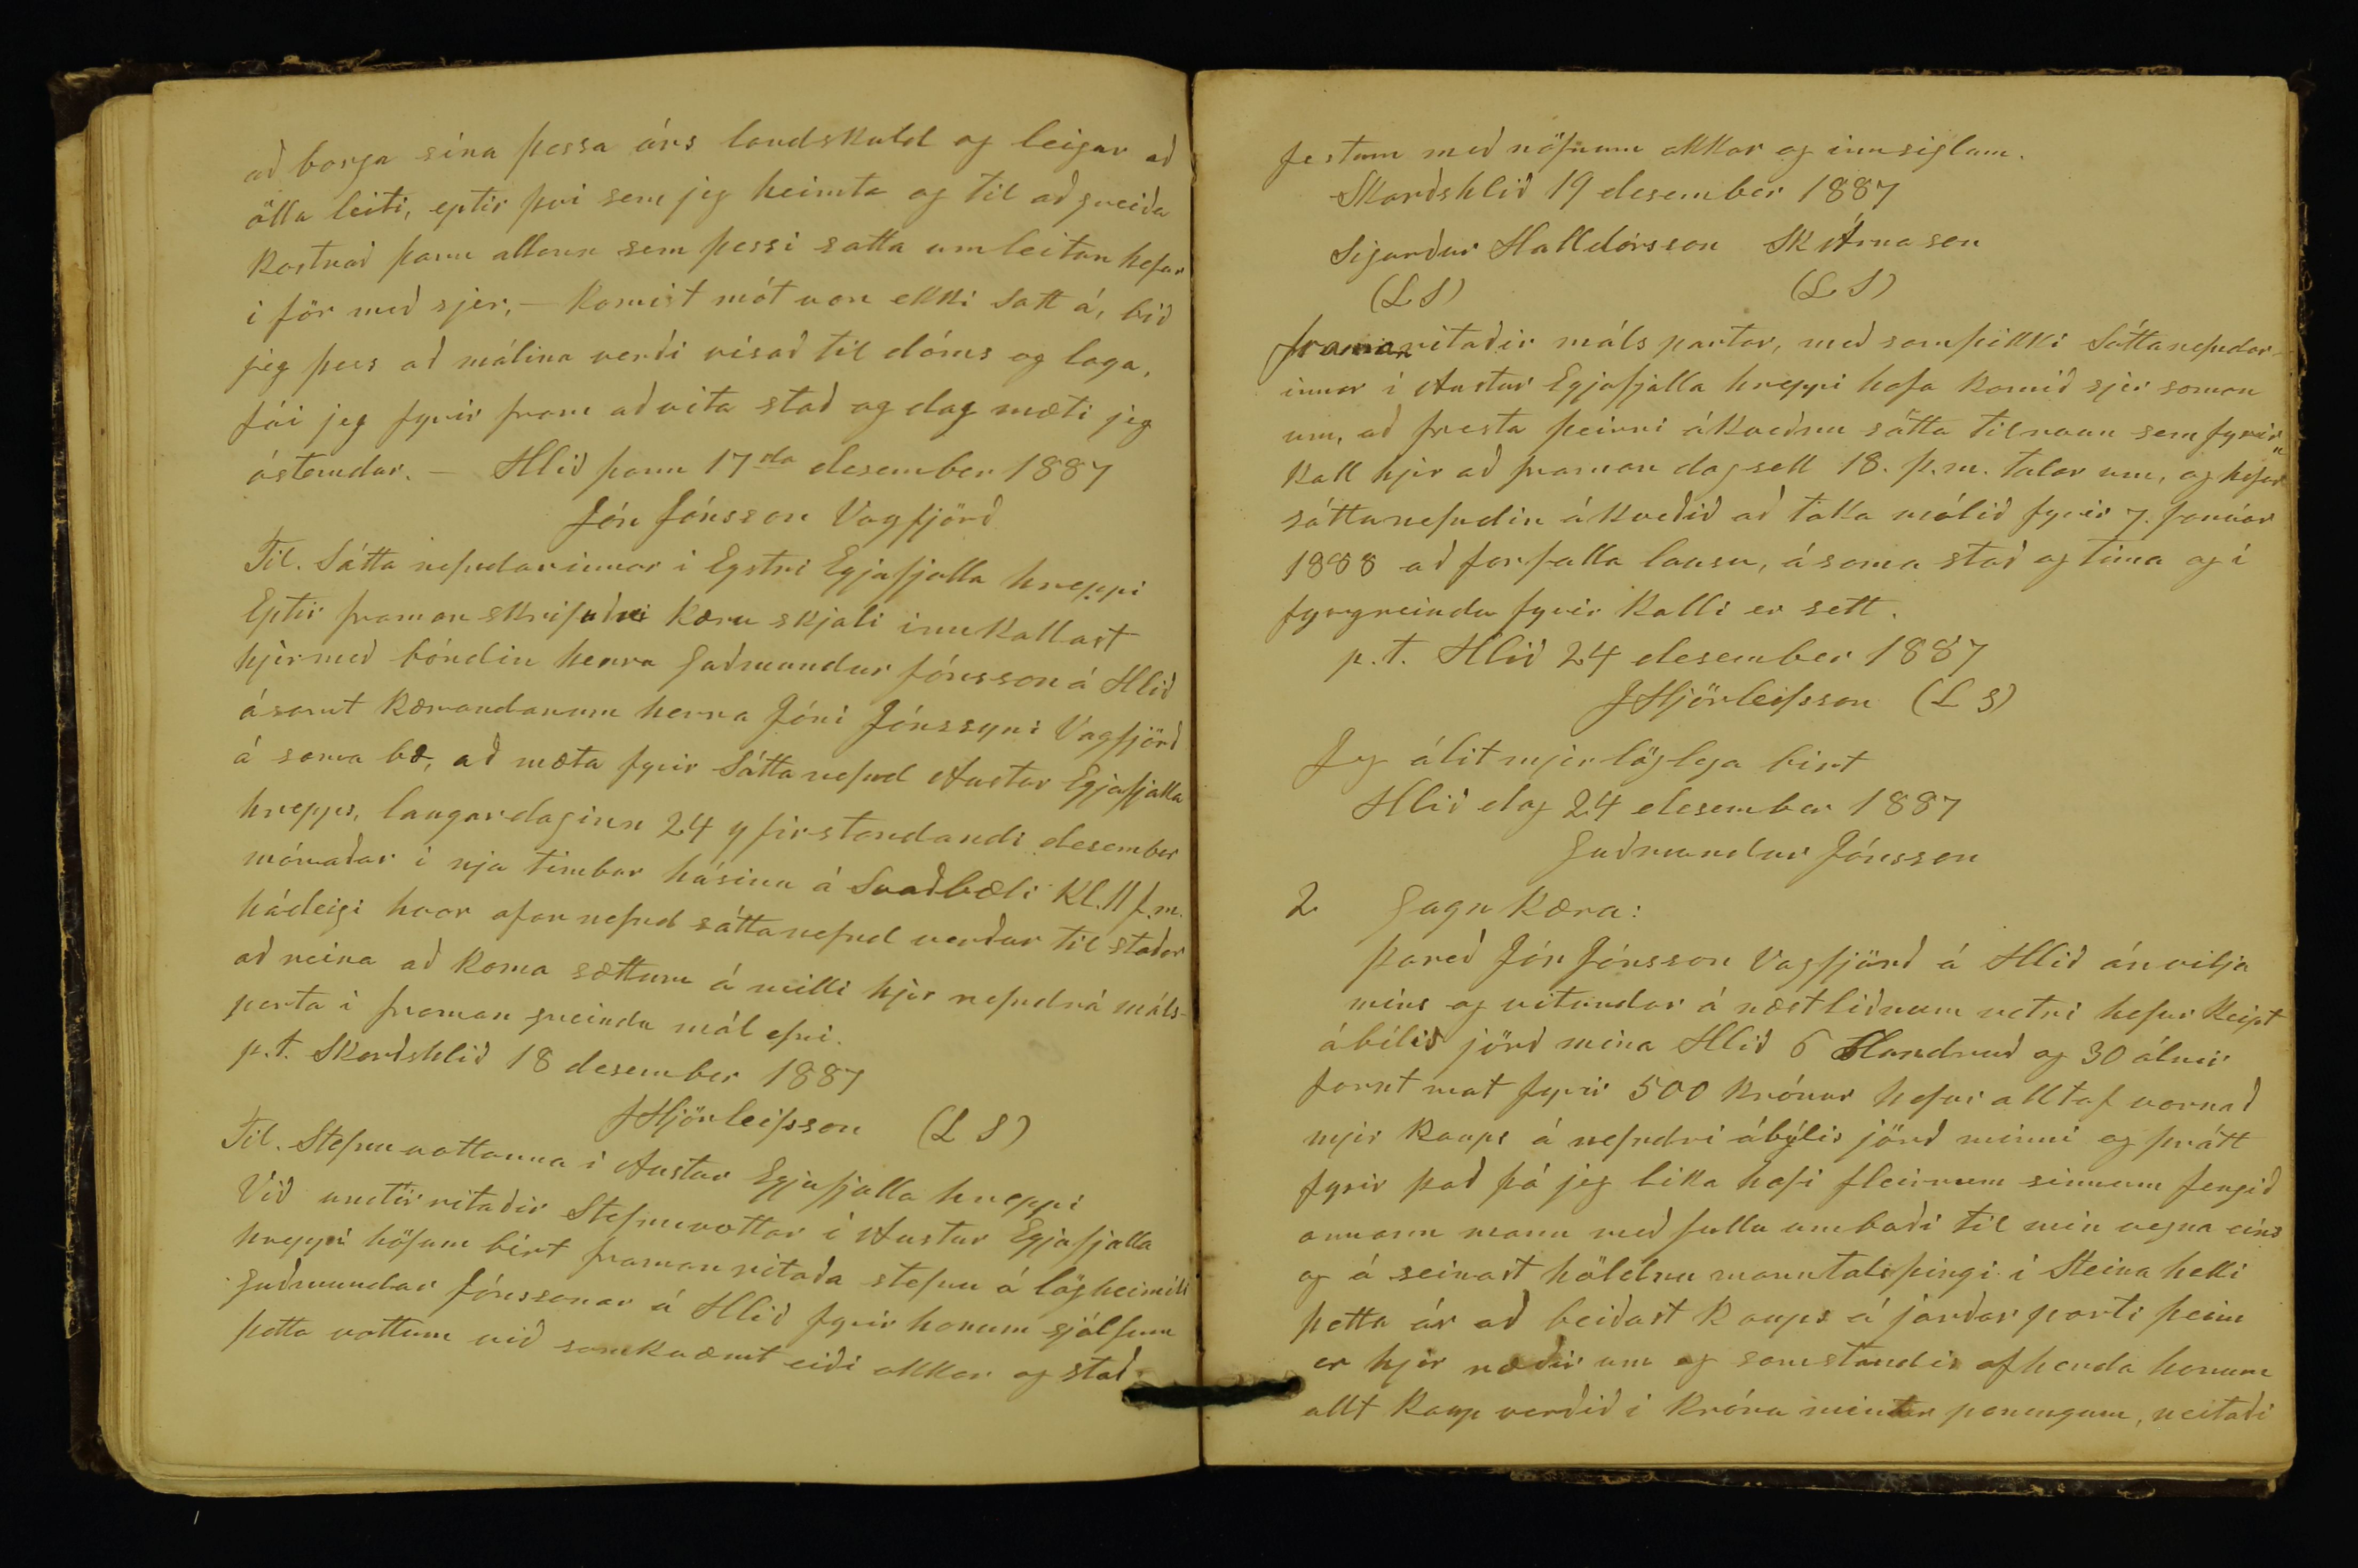 að borga sína þessa árs landskuld og leigur að
ölla leiti, eptir því sem jeg heimta og til að greiða
kostnað þann allann sem þessi satta umleitan hefur
í för með sjer, — komist mót von ekki satt á, bið
jeg þess að málinu verði vísað til dóms og laga,
fái jeg fyrir fram að vita stað og dag mæti jeg
ástundar. — Hlíð þann 17da desember 1887
Jón Jónsson Vagfjörð
Til. Sátta nefndarinnar i Eystri Eyjafjalla hreppi
Eptir framan skrifuðu kæru skjali innkallast
hjermeð bóndin herra Guðmundur Jónsson á Hlíð
ásamt kærandanum herra Jóni Jónssyni Vagfjörð
á sama bæ, að mæta fyrir Sáttanefnd Austur Eyjafjalla
hrepps, laugardaginn 24 yfirstandandi desember
mánaðar i nýa timbur húsinu á Svaðbæli Kl. 11 f.m.
hádeigi hvar ofan nefnd sáttanefnd verður til staðar
að reina að koma sættum á milli hjer nefndra máls-
parta i framan greindu mál efni.
p.t. Skarðshlíð 18 desember 1887
JHjörleifsson (L S)
Til. Stefnuvottanna i Austur Eyjafjalla hreppi
Við undirritaðir Stefnuvottar i Austur Eyjafjalla
hreppi höfum birt framanritaða stefnu á lögheimili
Guðmundar Jónssonar á Hlíð fyrir honum sjálfum
þetta vottum við samkvæmt eiði okkar og stað
festum með nöfnum okkar og innsiglum.
Skarðshlíð 19 desember 1887
Sigurður Halldórsson Sk Árnason
(L S) (L S)
framanritaðir máls partar, með samþikki Sáttanefndar-
innar i Austur Eyjafjalla hreppi hafa komið sjer saman
um, að fresta þeirri ákveðnu sátta tilraun sem fyrir"
kall hjer að framan dagsett 18. þ.m. talar um, og hefur
sáttanefndin ákveðið að taka málið fyrir 7. janúar
1888 að forfalla lausu, á sama stað og tíma og i
fyrgreindu fyrir kalli er sett.
p.t. Hlíð 24 desember 1887
JHjörleifsson (L S)
Jeg álit mjer löglega birt
Hlíð dag 24 desember 1887
Guðmundur Jónsson
2 Gagn kæra:
Þareð Jón Jónsson Vagfjörð á Hlíð án vilja
mins og vitundar á næstliðnum vetri hefur keipt
ábílis jörð mina Hlíð 6 Hundruð og 30 álnir
fornt mat fyrir 500 krónur hefur alltaf varnað
mjer kaups á nefndri ábýlis jörð minni og þrátt
fyrir það þá jeg lika hafi fleirrum sinnum fengið
annann mann með fullu umboði til min vegna eins
og á seinast höldnu manntalsþingi i Steina helli
þetta ár að beiðast kaups á jarðar parti þeim
er hjer ræðir um og samstundis afhenda honum
allt kaup verðið i króna mintar peningum, neitaði